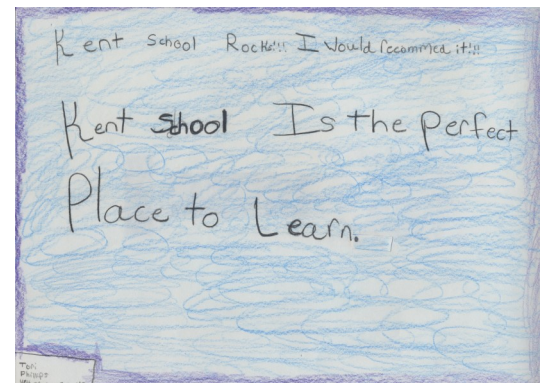 Kent School Rocks!!! I Would recommed it!!!
Kent School Is the perfect
Place to Learn.
Tori